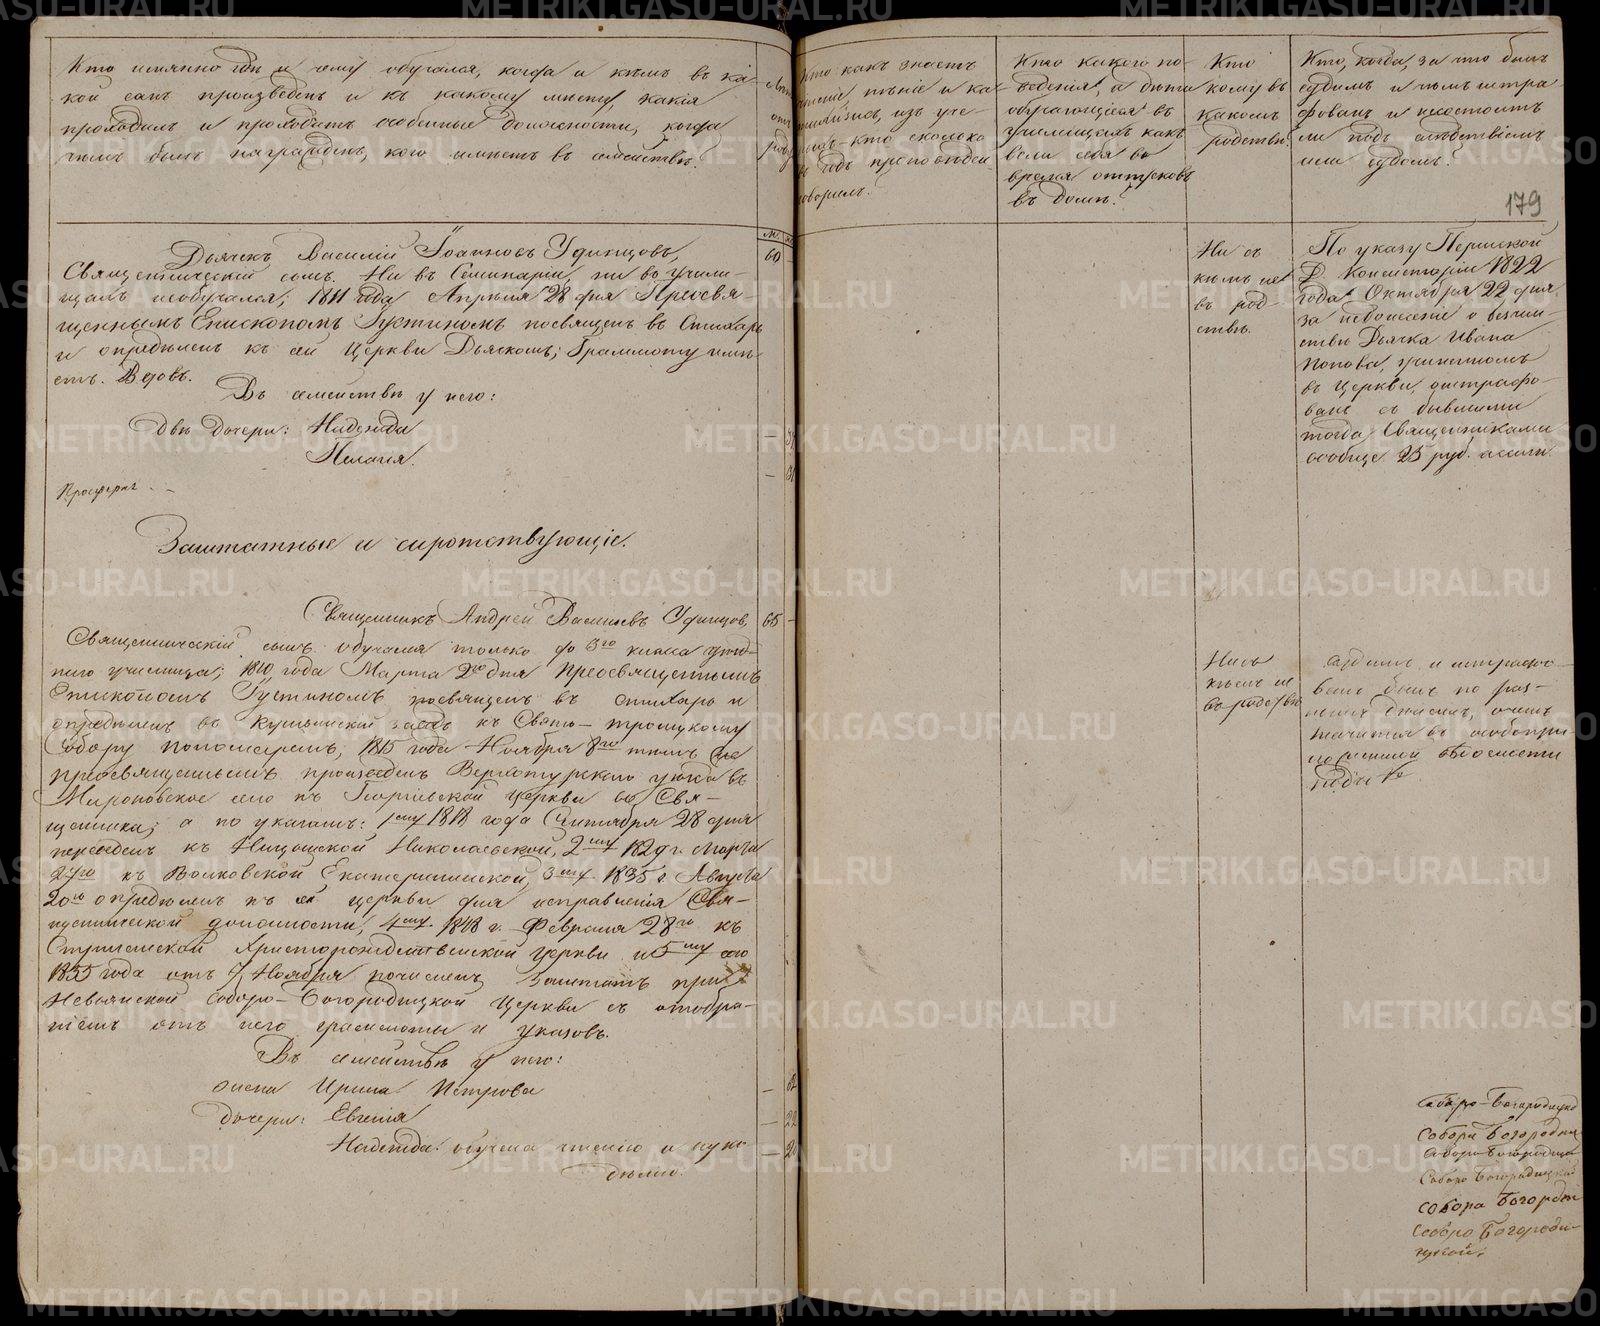 Кто имянно гдѣ и чему обучался, когда и кѣмъ въ ка-
кой санъ произведенъ и къ какому мѣсту, какія
проходилъ и проходитъ особенныя должности, когда
чѣмъ былъ награжденъ, кого имѣетъ въ семействѣ.
Кто какъ знаетъ
чтеніе, пѣніе и ка-
тихизисъ, изъ уче-
кто сколько
въ годъ проповѣдей
говорилъ.
Кто какого по-
веденія, а дѣти
обучающіеся въ
училищахъ какъ
вели себя во
время отпусковъ
въ домы?
Кто
кому въ
какомъ
родствѣ.
Кто, когда, за что былъ
судимъ и чѣмъ штра-
фованъ и не состоитъ
ли подъ слѣдствіемъ
или судомъ.
179
м.
Дьячекъ Василій Іоанновъ Удинцовъ, 60
Священническій сынъ. Ни въ Семинаріи, ни въ учили-
щахъ не обучался; 1811 года Апрѣля 28 дня Преосвя-
щеннымъ Епископомъ Іустиномъ посвященъ въ Стихарь
и опредѣленъ къ сей Церкви Дьячкомъ; Граммоту имѣ-
етъ. Вдовъ.
Въ семействѣ у него:
двѣ дочери: Надежда
Пелагія.
Просфорня
Ни съ
кѣмъ не
въ род-
ствѣ.
По указу Пермской
Д. Консисторіи 1822
года Октября 22 дня,
за недонесеніе о безчин-
ствѣ Дьячка Ивана
Попова, учиненномъ
въ Церкви, оштрафо-
ванъ съ бывшими
тогда Священниками
вообще 25 руб. ассигн.
Заштатные и сиротствующіе.
Священникъ Андрей Васильевъ Удинцовъ, 65
Священническій сынъ. обучался только до 3го класса уѣзд-
наго училища; 1810 года Марта 2го дня Преосвященнымъ
Епископомъ Іустиномъ посвященъ въ стихарь и
опредѣленъ въ Кушвинскій заводъ къ Свято-троицкому
Собору пономаремъ, 1815 года Ноября 8го тѣмъ же
преосвященнымъ произведенъ Верхотурскаго уѣзда въ
Мироновское село къ Георгіевской церкви во Свя-
щенника; а по указамъ: 1му 1818 года Сентября 28 дня
переведенъ къ Ницинской Николаевской, 2му 1829 г. Марта
27го къ Волковской Екатерининской, 3му 1835 г. Августа
20го опредѣленъ къ сей церкви для исправленія Свя-
щеннической должности, 4му 1848 г. Февраля 28го къ
Стриганской Христорождественской Церкви и 5му сего
1855 года отъ 7 Ноября почисленъ Заштатъ при
Невьянской Соборо-Богородицкой Церкви съ отобра-
ніемъ отъ него грамматы и указовъ.
Въ семействѣ у него:
жена Ирина Петрова
дочери: Евгенія 22
Надежда: обучена чтенію и руко-
дѣлію.
Ни съ
кѣмъ не
въ родствѣ
Судимъ и штрафо-
ванъ былъ по раз-
нымъ дѣламъ, о чемъ
значится въ особо при-
ложенной вѣдомости
Соборо-Богородицко
Собора Богородиц
Соборо-Богородицк
Соборо Богородицкой
Собора Богородиц
Соборо Богороди-
цкой;
METRIKI.GASO-URAL.RU